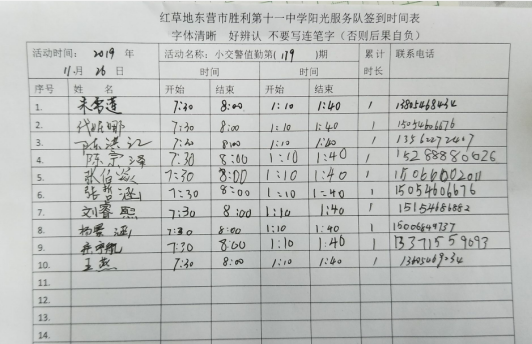 红草地东营市胜利第十一中学阳光服务队签到时间表
字体清晰 好辨认 不要写连笔字（否则后果自负）
活动时间： 2019 年 活动名称：小交警值勤第（119）期 累计 联系电话
11月 26日 时间 时间 时长
序号 姓 名 开始 结束 开始 结束
1. 7:30 8:00 1:10 1:40 1
2. 7:30 8:00 1:10 1:40 1 15054606676
3. 陈洪江 7:30 8:00 1:10 1:40 1
4. 陈宗泽 7:30 8:00 1:10 1:40 1 15288880626
5. 7:30 8:00 1:10 1:40 1 15066002011
6. 张哲涵 7:30 8:00 1:10 1:40 1 15054606676
7. 刘睿熙 7:30 8:00 1:10 1:40 1
8. 杨 涵 7:30 8:00 1:10 1:40 1 15006849737
9. 7:30 8:00 1:10 1:40 1 13371559093
10. 王燕 7:30 8:00 1:10 1:40 1
11.
12.
13.
14.